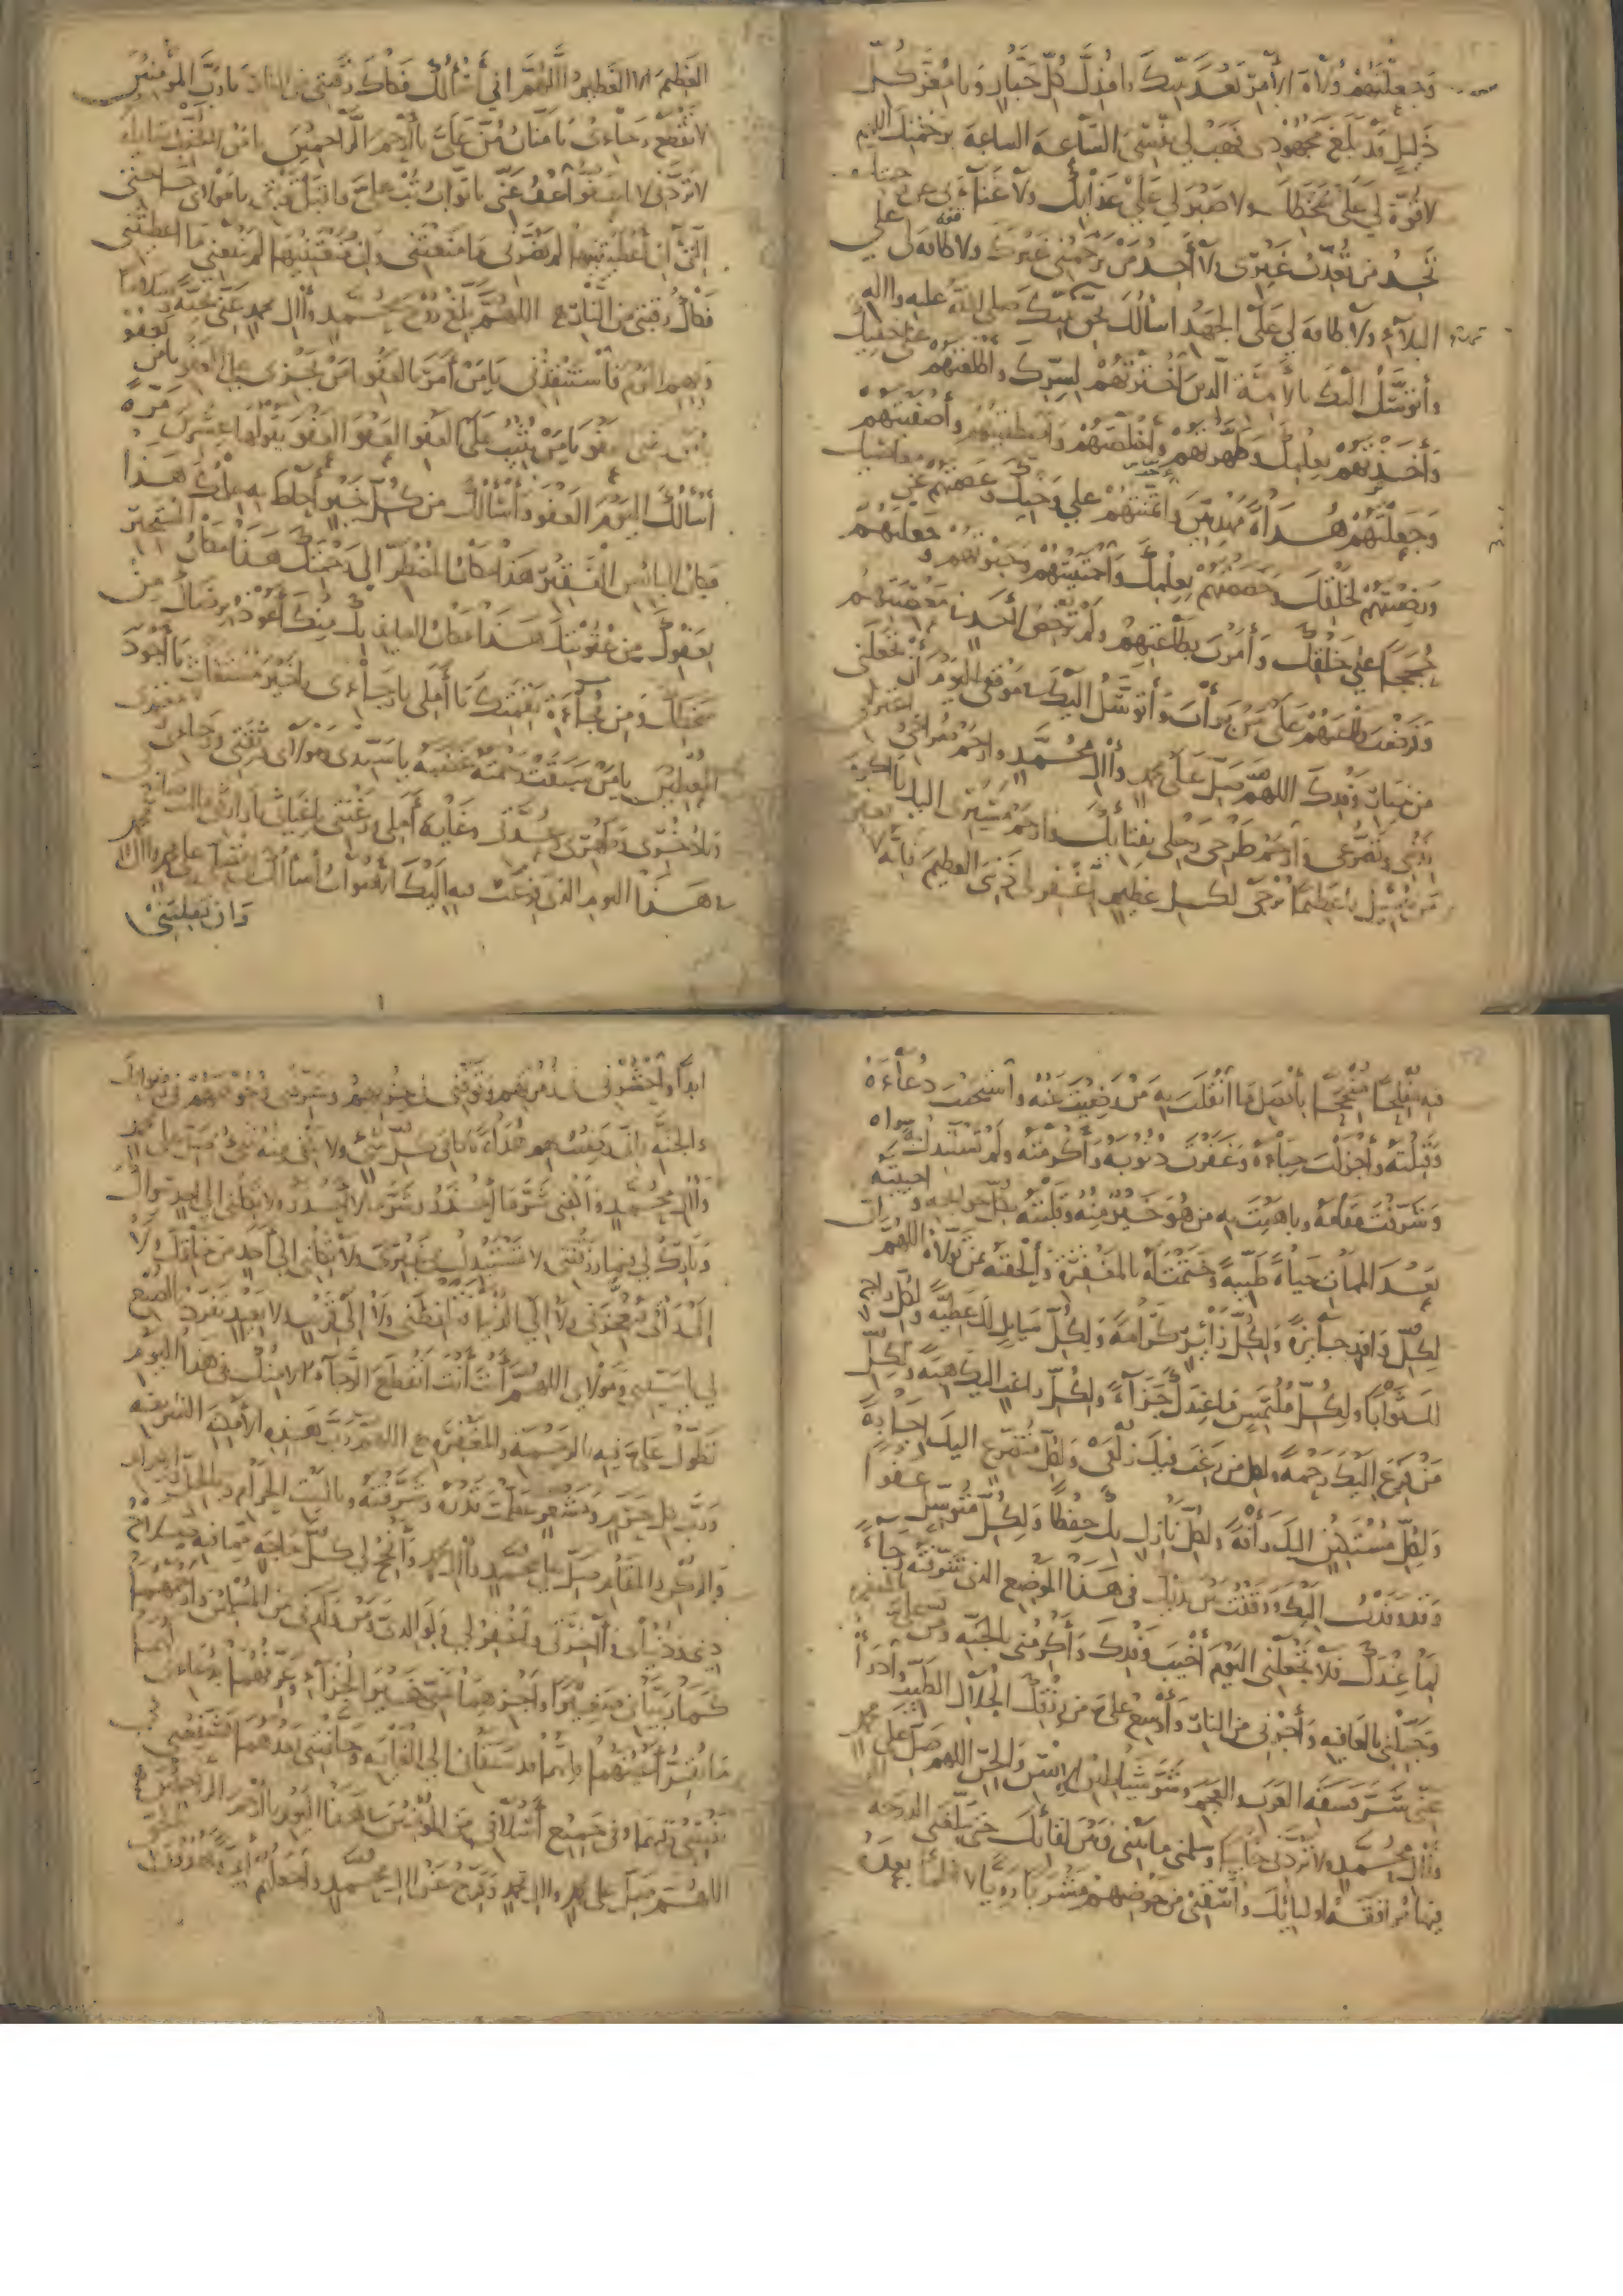 وَجَعَلْتَهُمْ وُلاَةَ الأَمْرِ بَعْدَ نَبِيِّكَ يا مُذِلَّ كُلِّ جَبَّارٍ وَيا مُعِزَّ كُلِّ
ذَلِيلٍ قَدْ بَلَغَ مَجْهُودِي فَهَبْ لِي نَفْسِي السَّاعَةَ الساعة برحمتك اللهم
لا قُوَّةَ لِي عَلَى سَخَطِكَ ولا صَبْرَ لِي عَلَى عَذَابِكَ وَلا غَنَاءَ بي عن
تَجِدُ مَنْ تُعَذِّبُ غَيْرِي ولا أَجِدُ مَنْ يَرْحَمُنِي غَيْرَكَ ولا طاقة لي على
البلاء ولا طاقة لي عَلَى الجَهْدِ اسألك بحق نبيك صلى الله عليه واله
وأَتَوَسَّلُ اليك بالأئمة الذين اخْتَرْتَهُمْ لِسِرِّكَ وأطلعتهم على خفيك
وَأَخَذْتَهُمْ بِعِلْمِكَ وطَهَّرْتَهُمْ وأَخْلَصْتَهُمْ واصطفيتهم وأَصْفَيْتَهُمْ
وَجَعَلْتَهُمْ هُدَاةً مهديين وائتمنتهم على وَحْيِكَ وعصمتهم عن معاصيك
ورضيتهم لخلقك وخصصتهم بعلمك واجتبيتهم وحبوتهم و جعلتهم
حُجَجًا على خَلْقِكَ وَأَمَرْتَ بِطَاعَتِهِمْ ولم ترخص لأحد في معصيتهم
وفرضت طاعتهم عَلَى مَنْ بَرَأْتَ وأَتَوَسَّلُ اليك في موقفي اليوم أن تجعلني
من خيار وفدك اللهم صل على محمد وآل مُحَمَّدٍ وارحم صراخي واعترافي
بذنبي وتضرعي وارحم طرحي رحلي بفنائك وارحم مسيري اليك يا اكرم
من سئل يا عظيما يرجى لكل عظيم اغفر لي ذنبي العظيم فإنه لا يغفر
العَظِيمَ إلا العَظِيمُ اللَّهُمَّ اني أسألك فكاك رقبتي من النار يا رب المؤمنين
لا تقطع رجاءي يا منان مُنَّ عَلَيَّ يا أرحم الراحمين يا من لا يخيب سايله
لا تردني يا عفو اعْفُ عَنِّي يا تواب تُبْ عليَّ واقبل توبتي يا مولاي حاجتي
التي إن أعطيتنيها لم يضرني ما منعتني وإن منعتنيها لم ينفعني ما اعطيتني
فكاك رقبتي من النار اللهم بلغ روح محمد وآل محمد عني تحية وسلاما
وبهم اليوم فاستنقذني يا من أمر بالعفو يا من يجزي على العفو يا من يعفو
يا من رضي العفو يا من يثيب على العفو العفو العفو يقولها عشرين مرة
أسألك اليوم العفو وأسألك من كل خير أحاط به علمك هذا
مكان البايس الفقير هذا مكان المضطر الى رحمتك هذا مكان المستجير
بعفوك من عقوبتك هذا مكان العايذ بك منك أعوذ برضاك من
سخطك ومن فجاءة نقمتك يا أملي يا رجاءي يا خير مستغاث يا أجود
المعطين يا من سبقت رحمته غضبه يا سيدي ومولاي ثقتي ورجاءي
ويا ذخري وظهري وعدتي وغاية أملي ورغبتي يا غياثي يا وارثي ما انت صانع بي
في هذا اليوم الذي فزعت فيه إليك الأصوات أسألك أن تصلي على محمد وآل محمد
وان تقلبني
فيه مُفْلِحًا مُنْجِحًا بأفضل ما انقلب به من رضيت عنه واستجبت دعاءه
وقبلته وأجزلت حباءه وغفرت ذنوبه وأكرمته ولم تستبدل به سواه
وشرفت مقامه وباهيت به من هو خير منه وقلبته بكل حوايجه واحييته
بعد الممات حياة طيبة وختمت له بالمغفرة وألحقته بمن تولاه اللهم إن
لكل وافد جايزة ولكل زائر كرامة ولكل سايل لك عطية ولكل راج
لك ثوابا ولكل ملتمس ما عندك جزاء ولكل راغب اليك هبة ولكل
من فزع اليك رحمة ولكل من رغب فيك زلفى ولكل متضرع اليك اجابة
ولكل مستكين اليك رأفة ولكل نازل بك حفظا ولكل متوسل عفوا
وقد وفدت اليك ووقفت بين يديك في هذا الموضع الذي شرفته رجاء
لما عندك فلا تجعلني اليوم أخيب وفدك وأكرمني بالجنة ومن علي بالمغفرة
وجملني بالعافية وأجرني من النار وأوسع علي من رزقك الحلال الطيب وادرأ
عني شر فسقة العرب والعجم وشر شياطين الإنس والجن اللهم صل على محمد
وآل محمد ولا تردني خايبا وسلمني ما بيني وبين لقائك حتى تبلغني الدرجة
فيها مرافقة اوليائك واسقني من حوضهم مشربا رويا لا أظمأ بعده
ابدا واحشرني في زمرتهم وتوفني في حزبهم وعرفني وجوههم في رضوانك
والجنة فإني رضيت بهم هداة يا كافي كل شيء ولا يكفي منه شيء صل على محمد
وآل محمد واكفني شر ما أحذر وشر ما لا أحذر ولا تكلني الى أحد سواك
وبارك لي فيما رزقتني ولا تستبدل بي غيري ولا تكلني إلى أحد من خلقك ولا
إلى رأيي فيعجزني ولا إلى الدنيا فتلفظني ولا إلى قريب ولا بعيد تفرد بالصنع
لي يا سيدي ومولاي اللهم أنت أنت انقطع الرجاء الا منك في هذا اليوم
تطول علي فيه بالرحمة والمغفرة اللهم رب هذه الأمكنة الشريفة
ورب كل حرم ومشعر عظمت قدره وشرفته وبالبيت الحرام وبالحل والاحرام
والركن والمقام صل على محمد وآل محمد وأنجح لي كل حاجة مما فيه صلاح
ديني ودنياي وآخرتي واغفر لي ولوالدي ومن ولدني من المسلمين وارحمهما
كما ربياني صغيرا واجزهما عني خير الجزاء وعرفهما بدعائي
ما يقر أعينهما فانهما قد سبقاني الى الغاية وخلفتني بعدهما فشفعني
في نفسي وفيهما وفي جميع أسلافي من المؤمنين في هذا اليوم يا أرحم الراحمين
اللهم صل على محمد وآل محمد وفرج عن آل محمد واجعلهم أئمة يهدون